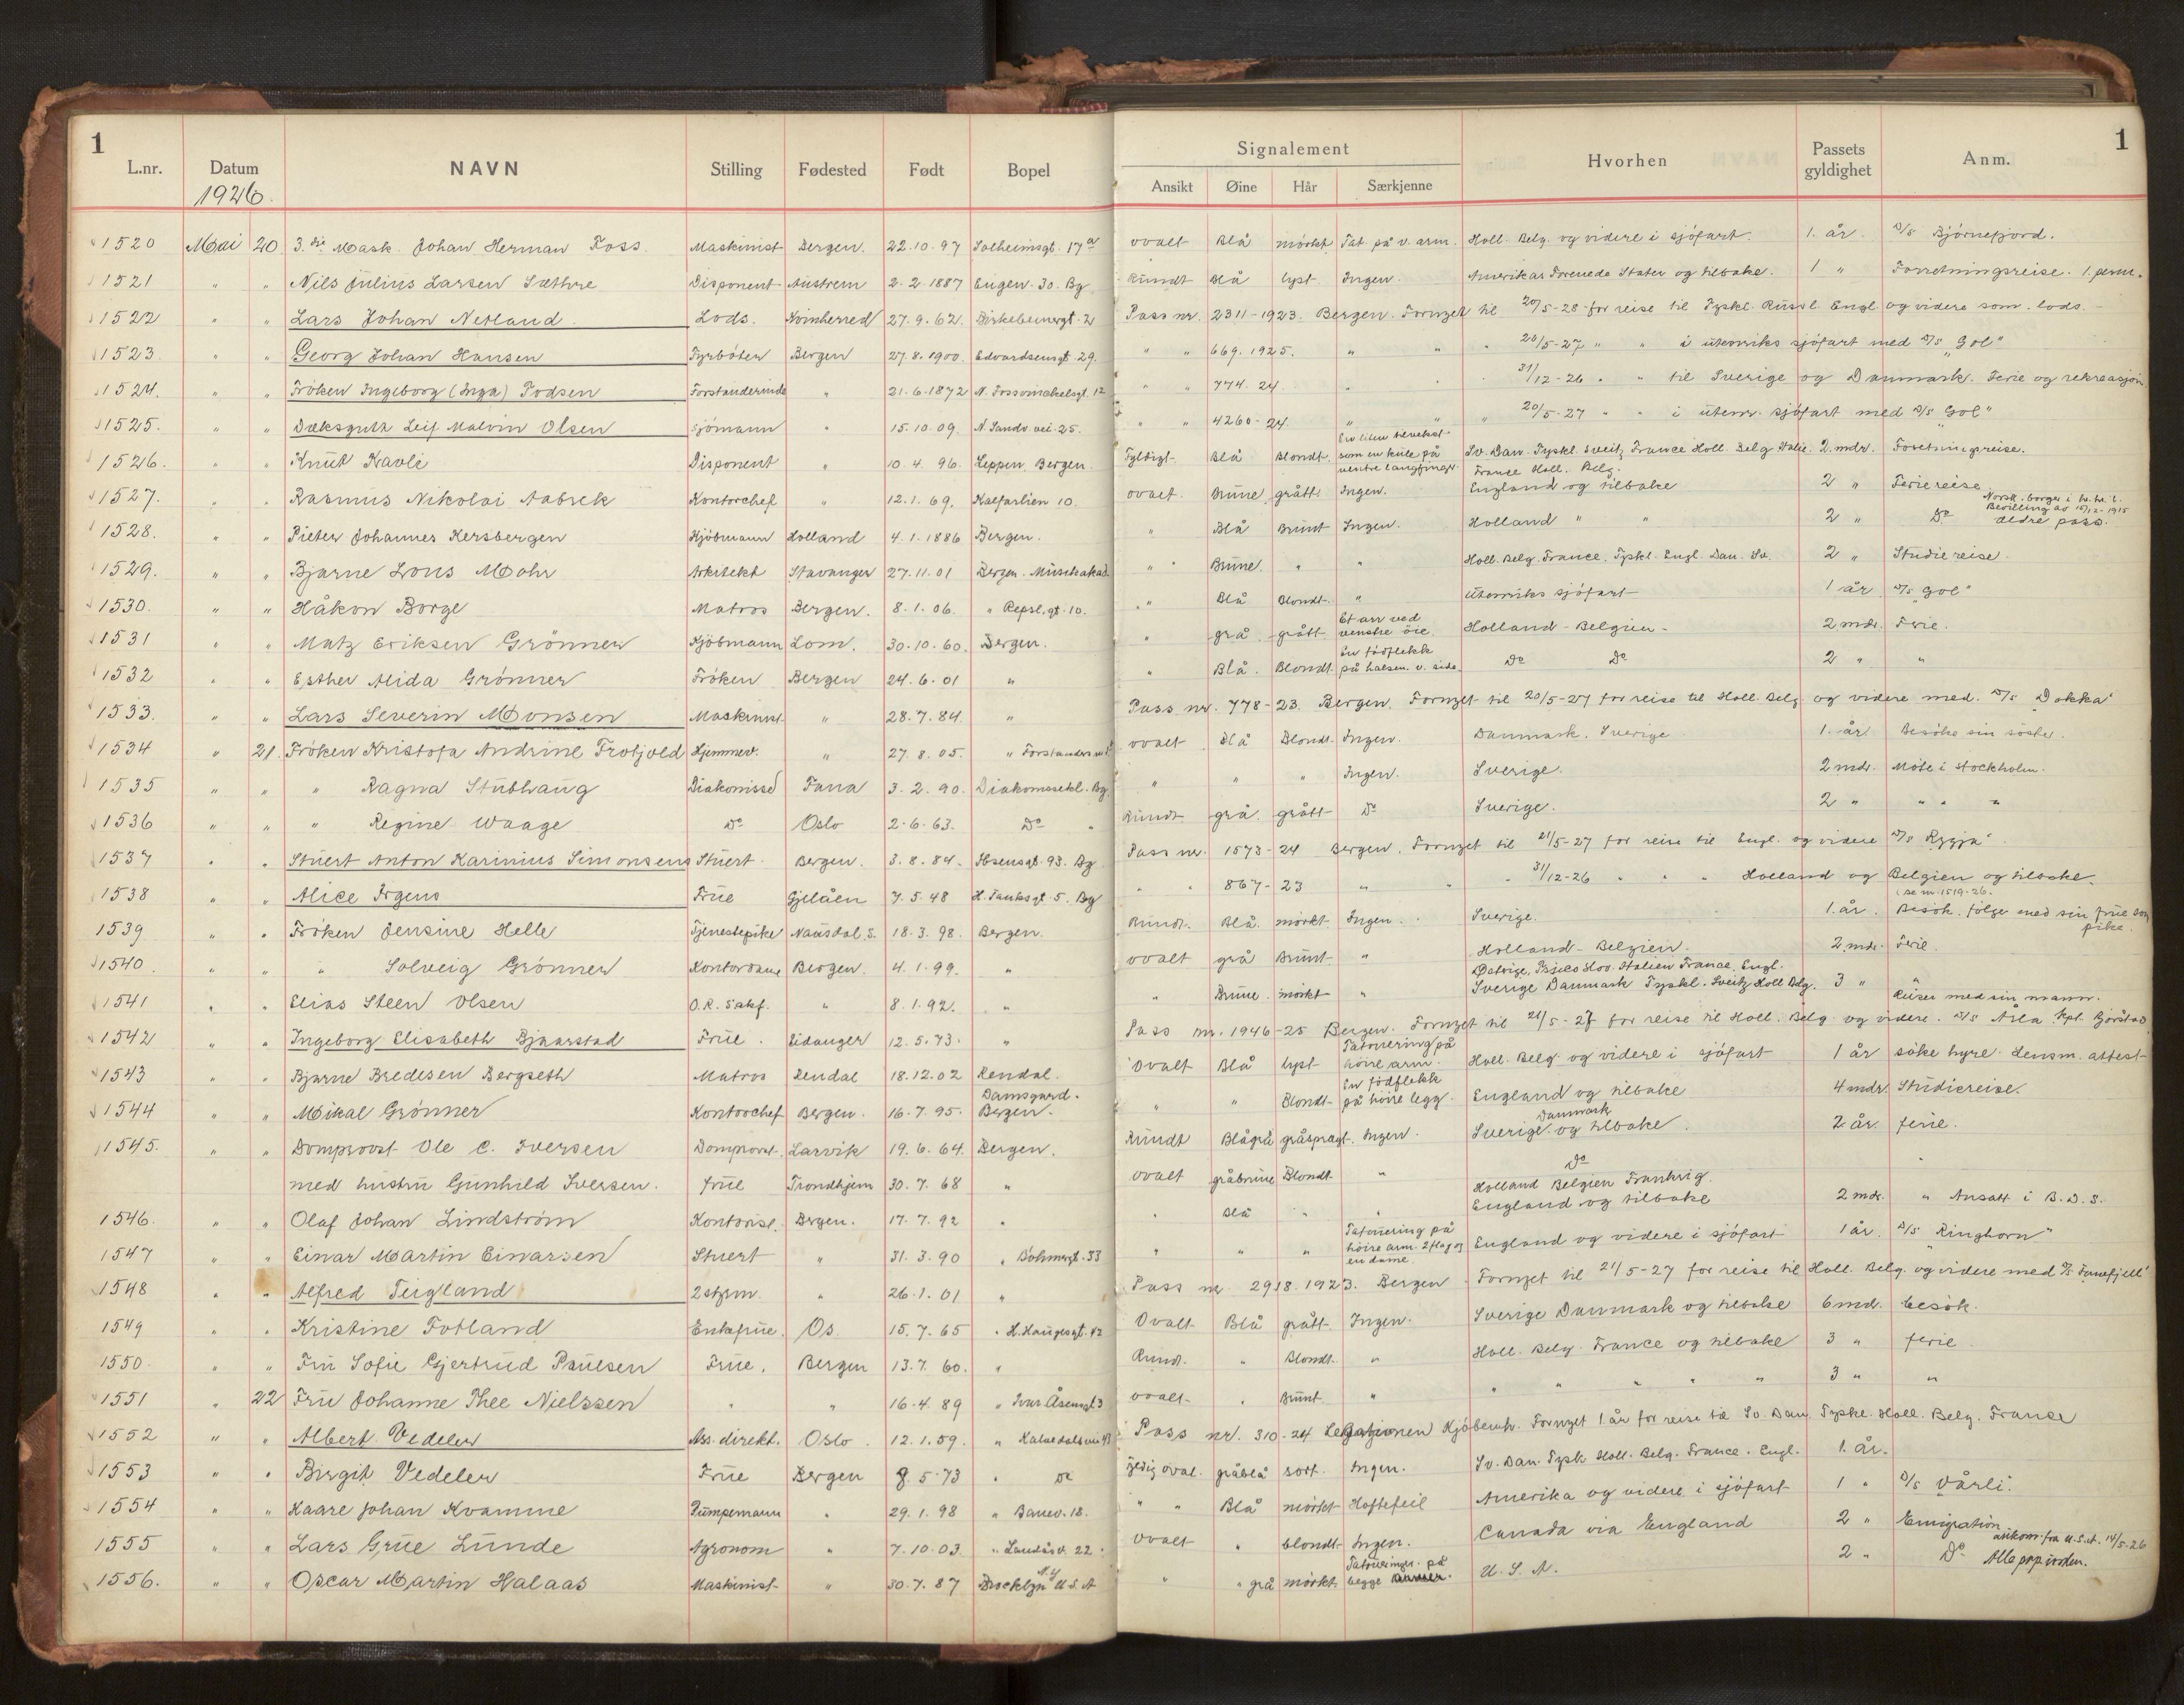 1
L.nr. Datum NAVN Stilling Fødested Født Bopel
1926.
1520 Mai 20. 3.die Mask. Johan Herman Foss. Maskinist Bergen. 22.10.97 Solheimsgt. 17a
1521 " " Nils Julius Larsen Sæthre Disponent Austrem 2.2.1887 Engen. 30. Bg
1522 " " Lars Johan Netland Lods. Kvinherred 27.9.62. Birkebeinergt. 2
1523. " " Georg Johan Hansen Fyrböter Bergen 27.8.1900. Edvardsensgt. 29.
1524. " " Fröken Ingeborg (Inga) Todsen Forstanderinde " 21.6.1872 N. Fossvinckelsgt. 12
1525. " " Dæksgutt Leif Malvin Olsen sjömann " 15.10.09. N. Sandv. vei. 25.
1526. " " Knut Kavli Disponent " 10.4.96. Leppen, Bergen.
1527. " " Rasmus Nikolai Aabrek Kontorchef " 12.1.69. Kalfarlien 10.
1528. " " Pieter Johannes Kersbergen Kjöbmann Holland 4.1.1886 Bergen.
1529. " " Bjarne Lous Mohr Arkitekt Stavanger 27.11.01 Bergen. Musikakad.
1530. " " Håkon Borge Matros Bergen. 8.1.06. " Repsl.gt. 10.
1531 " " Matz Eriksen Grönner Kjöbmann Lom. 30.10.60. Bergen.
1532 " " Esther Alida Grönner Fröken Bergen 24.6.01 "
1533. " " Lars Severin Monsen Maskinist. " 28.7.84. "
1534 " 21. Fröken Kristofa Andrine Trotjold Hjemmev. " 27.8.05. "
1535 " " " Ragna Stubhaug Diakonisse Fana 3.2.90. Bg.
1536 " " " Regine Waage Do Oslo 2.6.63. Do "
1537 " " Stuert Anton Karinius Simonsens Stuert. Bergen. 3.8.84. Ibsensgt. 93. Bg
1538 " " Alice Irgens Frue Gjelåen 7.5.48 H. Tanksgt. 5. Bg
1539 " " Fröken Jensine Helle Tjenestepike Naustdal, S. 18.3.98. Bergen.
1540. " " " Solveig Grönner Kontordame Bergen. 4.1.99. "
1541 " " Elias Steen Olsen O.R. Sakf. " 8.1.92. "
1542 " " Ingeborg Elisabeth Bjaarstad Frue. Eidanger 12.5.73. "
1543 " " Bjarne Bredesen Bergseth Matros Rendal 18.12.02 Rendal.
Damsgård.
1544 " " Mikal Grönner Kontorchef Bergen. 16.7.95. Bergen.
1545. " " Domprovst Ole C. Iversen Domprovst. Larvik 19.6.64. Bergen.
med hustru Gunhild Iversen. frue Trondhjem 30.7.68 "
1546. " " Olaf Johan Lindström Kontorist. Bergen. 17.7.92 "
1547 " " Einar Martin Einarsen Stuert " 31.3.90 " Böhmergt. 33
1548 " " Alfred Teigland 2styrm. " 26.1.01 "
1549 " " Kristine Totland Enkefrue. Os. 15.7.65 " H. Haugesgt. 42
1550. " " Fru Sofie Gjertrud Paulsen Frue. Bergen 13.7.60. "
1551 " 22 Fru Johanne Thee Nielssen " " 16.4.89 " Ivar Åsensgt 3
1552 " " Albert Vedeler Ass. direkt. Oslo. 12.1.59. " Kalvedalsvei 43
1553 " " Birgit Vedeler Frue Bergen 8.5.73 " Do
1554 " " Kaare Johan Kvamme Pumpemann " 29.1.98 " Banev. 18.
1555 " " Lars Grue Lunde Agronom " 7.10.03. " Landåsv. 22.
N.Y
1556. " " Oscar Martin Halaas Maskinist " 30.7.87 Brocklyn U.S.A
1
Signalement Hvorhen Passets gyldighet Anm.
Ansikt Øine Hår Særkjenne
ovalt Blå mörkt Tat. på v. arm. Holl. Belg. og videre i sjöfart. 1. år. D/S Björnefjord.
Rundt Blå lyst. Ingen. Amerikas Forenede Stater og tilbake. 1 " Forretningsreise.
Pass nr. 2311-1923. Bergen. Fornyet til 20/5-28 for reise til Tyskl. Russl. Engl. og videre som lods.
" " 669. 1925. " " " 20/5-27 " " i utenriks sjöfart med D/S "Gol"
" " 774. 24. " " 31/12-26 " " til Sverige og Danmark. Ferie og rekreasjon.
" " 4260-24. " " " 20/5-27 " " i utenr. sjöfart med D/S Gol"
En liten tilvekst
Fyldigt. Blå Blondt. som en kule på Sv. Dan. Tyskl. Sveitz France Holl. Belg Italie. 2.mdr. Foretningsreise.
venstre langfinger. Franse Holl. Belg.
ovalt. Brune grått. Ingen. England og tilbake 2 " Feriereise.
Norsk borger i
Bevilling av 15/12-1915
" Blå Brunt Ingen. Holland " " 2 " Do ældre pass.
" " Brune. " " Holl. Belg. France. Tyskl. Engl. Dan. Sv. 2 " Studiereise.
" Blå Blondt. " Utenriks sjöfart 1 år. D/S "Gol"
Et arr ved
" grå. grått. venstre öie. Holland - Belgien - 2 mdr. Ferie.
En födflekk
" Blå. Blondt. på halsen v. side. Do Do 2 " "
Pass nr. 778-23. Bergen. Fornyet til 20/5-27 for reise til Holl. Belg. og videre med. D/S "Dokka"
ovalt Blå Blondt. Ingen. Danmark. Sverige 1. år. Besöke sin söster.
" " " Ingen. Sverige. 2 mdr. Möte i Stockholm.
Rundt grå. grått Do Sverige. 2 " " " "
Pass nr. 1573-24 Bergen. Fornyet til 21/5-27 for reise til Engl. og videre D/S "Rygja".
" " 867-23 " " " 31/12-26 " " " Holland og Belgien og tilbake.
(se nr. 1519-26.
Rundt. Blå. mörkt Ingen. Sverige. 1. år. Besök. fölge med sin frue som
pike.
ovalt grå Brunt " Holland - Belgien. 2.mdr. Ferie.
Italien France. Engl.
" Brune. mörkt " Sverige Danmark Tyskl. Sveitz Holl Belg. 3 " "
Reiser med sin mann.
Pass nr. 1946-25 Bergen. Fornyet til 21/5-27 for reise til Holl. Belg og videre. D/S Arla Kpt. Bjorstad
Tatovering på
ovalt Blå lyst höire arm. Holl. Belg og videre i sjöfart 1 år söke hyre. Lensm. attest
En födflekk
" " Blondt. på höire legg. England og tilbake 4 mdr. Studiereise.
Danmark
Rundt Blågrå gråspragt. Ingen. Sverige og tilbake. 2 år. ferie.
ovalt gråbrune Blondt. " Do "
Holland Belgien Frankrig.
" Blå " " England og tilbake 2 mdr. " Ansatt i B.D.S.
Tatovering på
" " " höire arm. 2 flag og England og videre i sjöfart 1 år. D/S "Ringhorn"
en dame.
Pass nr. 2918. 1923. Bergen Fornyet til 21/5-27 for reise til Holl. Belg. og videre med D/S Fanefjell"
Ovalt Blå grått. Ingen. Sverige Danmark og tilbake 6 md. besök.
Rund. " Blondt. " Holl. Belg. France og tilbake 3 " ferie.
ovalt. " Brunt " " " " " " 3 " "
Pass nr. 310-24 Legationen Kjöbenh. Fornyet 1 år for reise til Sv. Dan. Tyskl. Holl. Belg. France
oval. gråblå sort. Ingen. Sv. Dan. Tysk Holl. Belg. France. Engl. 1. år.
" " Blå mörkt Hoftefeil Amerika og videre i sjöfart 1 " D/S Vårli".
ovalt " blondt Ingen. Canada via England 2 " Emigration
Tatoveringer på ankom. fra U.S.A. 14/5-26
" " grå mörkt. begge armer. U.S.A. 2 " Do